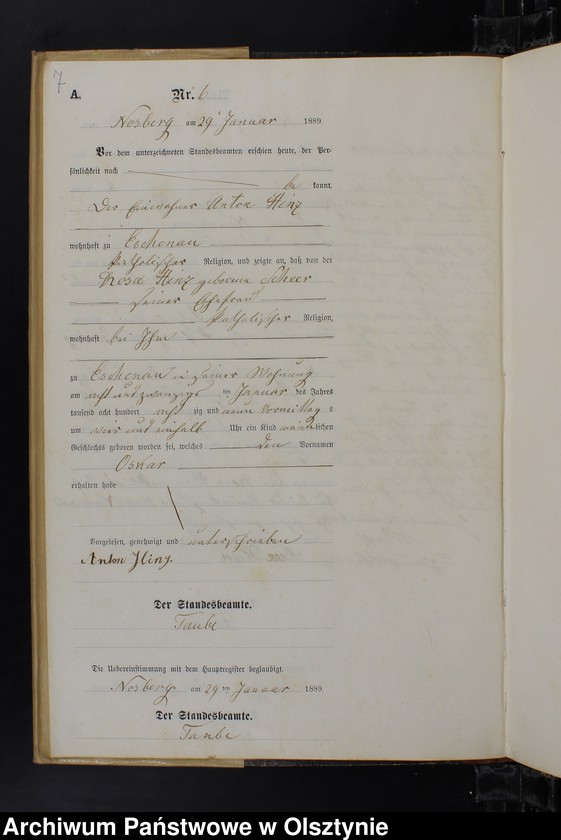 7
A. Nr. 6
Nosberg am 29 Januar 1889
Vor dem unterzeichneten Standesbeamten erschien heute, der Per-
sönlichkeit nach
be kannt,
Der Einwohner Anton Hinz
wohnhaft zu Eschenau
katholischer Religion, und zeigte an, daß von der
Rosa Hinz geborene Scheer
seiner Ehefrau
katholischer Religion,
wohnhaft bei Ihm
zu Eschenau in seiner Wohnung
am acht und zwanzigs ten Januar des Jahres
tausend acht hundert acht zig und neun Vormittag s
um vier und einhalb Uhr ein Kind männ lichen
Geschlechts geboren worden sei, welches den Vornamen
Oskar
erhalten habe
Vorgelesen, genehmigt und unterschrieben
Anton Hinz.
Der Standesbeamte.
Taube
Die Uebereinstimmung mit dem Hauptregister beglaubigt.
Nosberg am 29 ten Januar 1889
Der Standesbeamte.
Taube
Archiwum Państwowe w Olsztynie